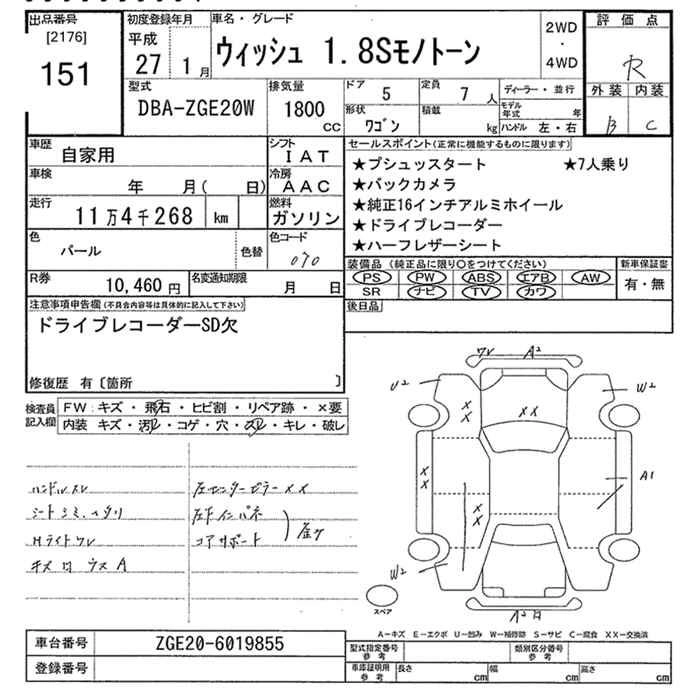 出品番号
[2176]
151
初度登録年月
平成
27 1月
車名・グレード
ウィッシュ 1.8Sモノトーン
2WD
・
4WD
評価点
R
外装 内装
B C
型式
DBA-ZGE20W
排気量
1800
CC
ドア
5
定員
7 人
形状
ワゴン
積載
kg
ディーラー・並行
モデル年式 年
ハンドル 左・右
車歴
自家用
シフト
IAT
車検
年 月( 日)
冷房
AAC
走行
11万4千268 km
燃料
ガソリン
色
パール
色替
色コード
070
R券
10,460 円
名変通知期限
月 日
セールスポイント(正常に機能するものに限ります)
★プシュッスタート ★7人乗り
★バックカメラ
★純正16インチアルミホイール
★ドライブレコーダー
★ハーフレザーシート
装備品(純正品に限り○をつけてください)
PS PW ABS エアB AW
SR ナビ TV カワ
新車保証書
有・無
後日品
注意事項申告欄(不具合内容等は具体的に記入して下さい)
ドライブレコーダーSD欠
修復歴 有〔箇所 〕
検査員記入欄
FW:キズ・飛石・ヒビ割・リペア跡・×要
内装 キズ・汚レ・コゲ・穴・スレ・キレ・破レ
ハンドルスレ
シートシミ、ヘタリ
Hライトワレ
左センターピラー XX
左下インパネ
コアサポート
ワレ A2
U2
W2
XX
XX
XX
XX
A1
W2
スペア
A-キズ E-エクボ U-凹み W-補修跡 S-サビ C-腐食 XX-交換済
車台番号
ZGE20-6019855
登録番号
型式指定番号
参考
類別区分番号
参考
車庫証明用
参考
長さ cm
幅 cm
高さ cm